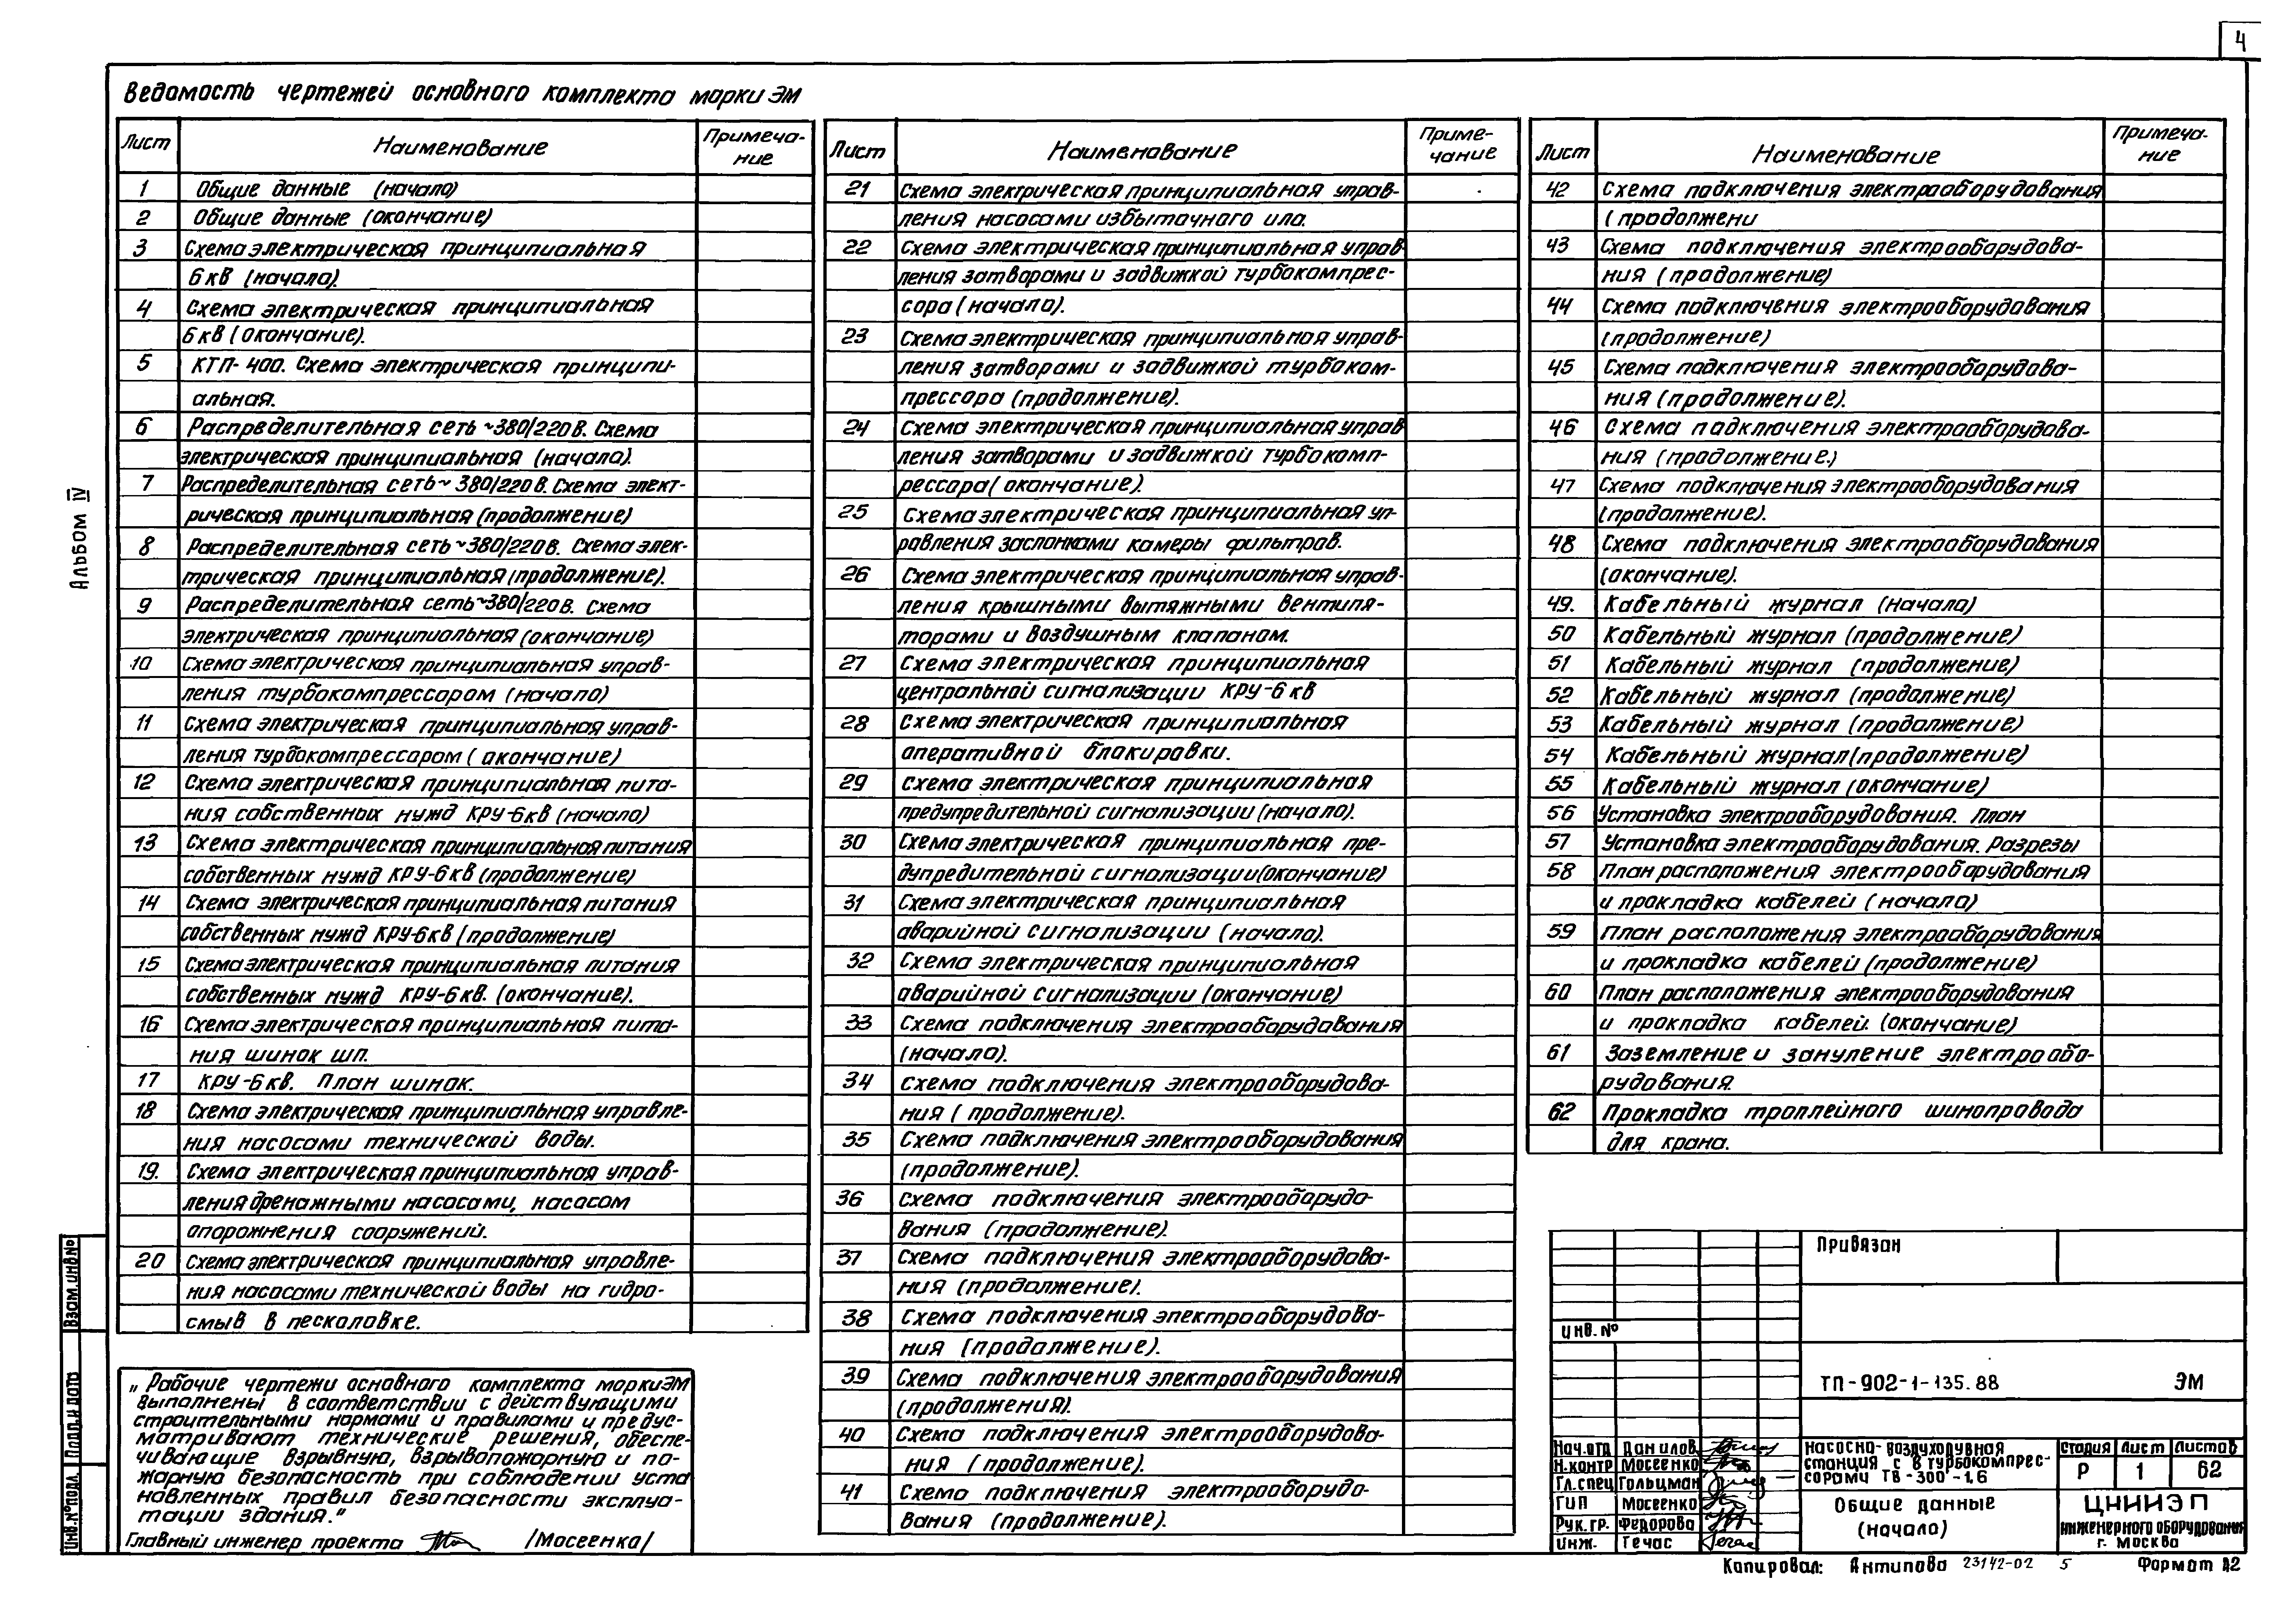 4
Ведомость чертежей основного комплекта марки ЭМ
Лист Наименование Примеча-
ние
1 Общие данные (начало)
2 Общие данные (окончание)
3 Схема электрическая принципиальная
6кВ (начало).
4 Схема электрическая принципиальная
6кВ (окончание).
5 КТП-400. Схема электрическая принципи-
альная.
6 Распределительная сеть ~380/220В. Схема
электрическая принципиальная (начало).
7 Распределительная сеть ~ 380/220В. Схема элект-
рическая принципиальная (продолжение)
8 Распределительная сеть ~380/220в. Схема элек-
трическая принципиальная (продолжение).
9 Распределительная сеть ~380/220в. Схема
электрическая принципиальная (окончание)
10 Схема электрическая принципиальная управ-
ления турбокомпрессором (начало)
11 Схема электрическая принципиальная управ-
ления турбокомпрессором (окончание)
12 Схема электрическая принципиальная пита-
ния собственных нужд КРУ-6кВ (начало)
13 Схема электрическая принципиальная питания
собственных нужд КРУ-6кВ (продолжение)
14 Схема электрическая принципиальная питания
собственных нужд КРУ-6кВ (продолжение)
15 Схема электрическая принципиальная питания
собственных нужд КРУ-6кВ. (окончание).
16 Схема электрическая принципиальная пита-
ния шинок ШП.
17 КРУ-6кВ. План шинок.
18 Схема электрическая принципиальная управле-
ния насосами технической воды.
19. Схема электрическая принципиальная управ-
ления дренажными насосами, насосом
опорожнения сооружений.
20 Схема электрическая принципиальная управле-
ния насосами технической воды на гидро-
смыв в песколовке.
Лист Наименование Приме-
чание
21 Схема электрическая принципиальная управ-
ления насосами избыточного ила.
22 Схема электрическая принципиальная управ-
ления затворами и задвижкой турбокомпрес-
сора (начало).
23 Схема электрическая принципиальная управ-
ления затворами и задвижкой турбоком-
прессора (продолжение).
24 Схема электрическая принципиальная управ
ления затворами и задвижкой турбокомп-
рессора (окончание).
25 Схема электрическая принципиальная уп-
равления заслонками камеры фильтров.
26 Схема электрическая принципиальная управ-
ления крышными вытяжными вентиля-
торами и воздушным клапаном.
27 Схема электрическая принципиальная
центральной сигнализации КРУ-6кВ
28 Схема электрическая принципиальная
оперативной блокировки.
29 Схема электрическая принципиальная
предупредительной сигнализации (начало).
30 Схема электрическая принципиальная пре-
дупредительной сигнализации (окончание)
31 Схема электрическая принципиальная
аварийной сигнализации (начало).
32 Схема электрическая принципиальная
аварийной сигнализации (окончание)
33 Схема подключения электрооборудования
(начало).
34 Схема подключения электрооборудова-
ния (продолжение).
35 Схема подключения электрооборудования
(продолжение).
36 Схема подключения электрооборудо-
вания (продолжение).
37 Схема подключения электрооборудова-
ния (продолжение).
38 Схема подключения электрооборудова-
ния (продолжение).
39 Схема подключения электрооборудования
(продолжения).
40 Схема подключения электрооборудова-
ния (продолжение).
41 Схема подключения электрооборудо-
вания (продолжение).
Лист Наименование Примеча-
ние
42 Схема подключения электрооборудования
(продолжени
43 Схема подключения электрооборудова-
ния (продолжение)
44 Схема подключения электрооборудования
(продолжение)
45 Схема подключения электрооборудова-
ния (продолжение).
46 Схема подключения электрооборудова-
ния (продолжение.)
47 Схема подключения электрооборудования
(продолжение).
48 Схема подключения электрооборудования
(окончание).
49. Кабельный журнал (начало)
50 Кабельный журнал (продолжение)
51 Кабельный журнал (продолжение)
52 Кабельный журнал (продолжение)
53 Кабельный журнал (продолжение)
54 Кабельный журнал (продолжение)
55 Кабельный журнал (окончание)
56 Установка электрооборудования. План
57 Установка электрооборудования. Разрезы
58 План расположения электрооборудования
и прокладка кабелей (начало)
59 План расположения электрооборудования
и прокладка кабелей (продолжение)
60 План расположения электрооборудования
и прокладка кабелей. (окончание)
61 Заземление и зануление электрообо-
рудования.
62 Прокладка троллейного шинопровода
для крана.
Альбом IV
Взам. инв.№
Подп. и дата
Инв.№подл.
„Рабочие чертежи основного комплекта марки ЭМ
выполнены в соответствии с действующими
строительными нормами и правилами и предус-
матривают технические решения, обеспе-
чивающие взрывную, взрывопожарную и по-
жарную безопасность при соблюдении уста
новленных правил безопасности эксплуа-
тации здания."
Главный инженер проекта /Мосеенка/
Привязан
Инв. №
ТП-902-1-135.88 ЭМ
Нач.отд Данилов
Н.контр Мосеенко
Гл.спец Гольцман
ГИП Мосеенко
Рук.гр. Федорова
Инж. Гечас
Насосно-воздуходувная
станция с 8 турбокомпрес-
сорами ТВ-300-1,6
Стадия Лист Листов
Р 1 62
Общие данные
(начало)
ЦНИИЭП
инженерного оборудования
г. Москва
Копировал: Антипова 23142-02 5 Формат А2